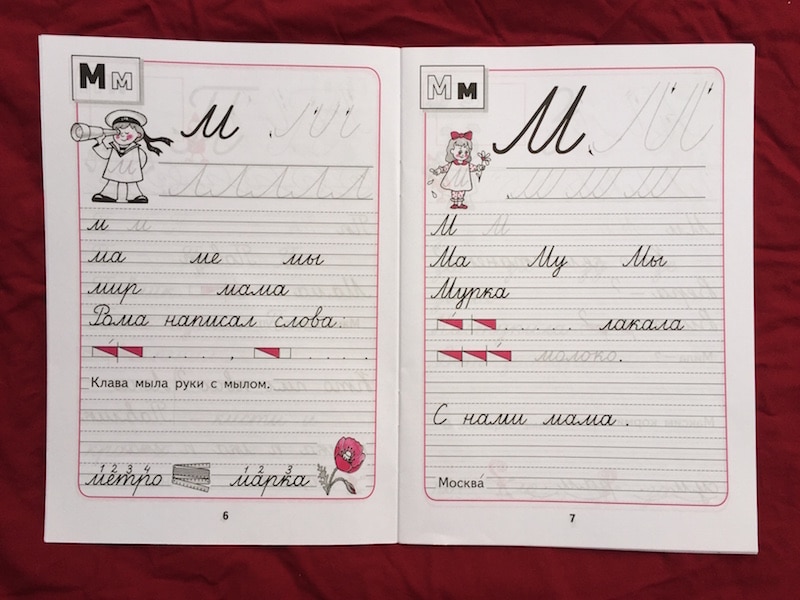 М м
м м
м м
ма ме мы
мир мама
Рома написал слова:
, .
Клава мыла руки с мылом.
1 2 3 4 1 2 3
метро марка
6
М м
М М
М М
Ма Му Мы
Мурка
лакала
молоко.
С нами мама.
Москва́
7